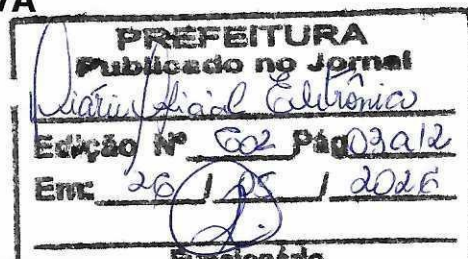 VA
PREFEITURA
Publicado no Jornal
Diário Oficial Eletrônico
Edição Nº 602 Pág 03 a 12
Em: 26 / 05 / 2026
Funcionário